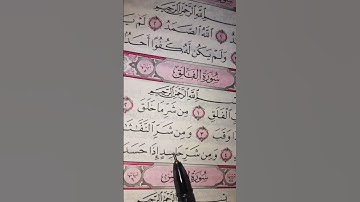 بِسْمِ اللَّهِ الرَّحْمَٰنِ الرَّحِيمِ
اللَّهُ الصَّمَدُ ٢ لَمْ يَلِدْ
وَلَمْ يَكُن لَّهُ كُفُوًا أَحَدٌ
سُورَةُ الْفَلَقِ
بِسْمِ اللَّهِ الرَّحْمَٰنِ الرَّحِيمِ
الْفَلَقِ ١ مِن شَرِّ مَا خَلَقَ
وَقَبَ ٣ وَمِن شَرِّ النَّفَّاثَاتِ
٤ وَمِن شَرِّ حَاسِدٍ إِذَا حَسَدَ
سُورَةُ